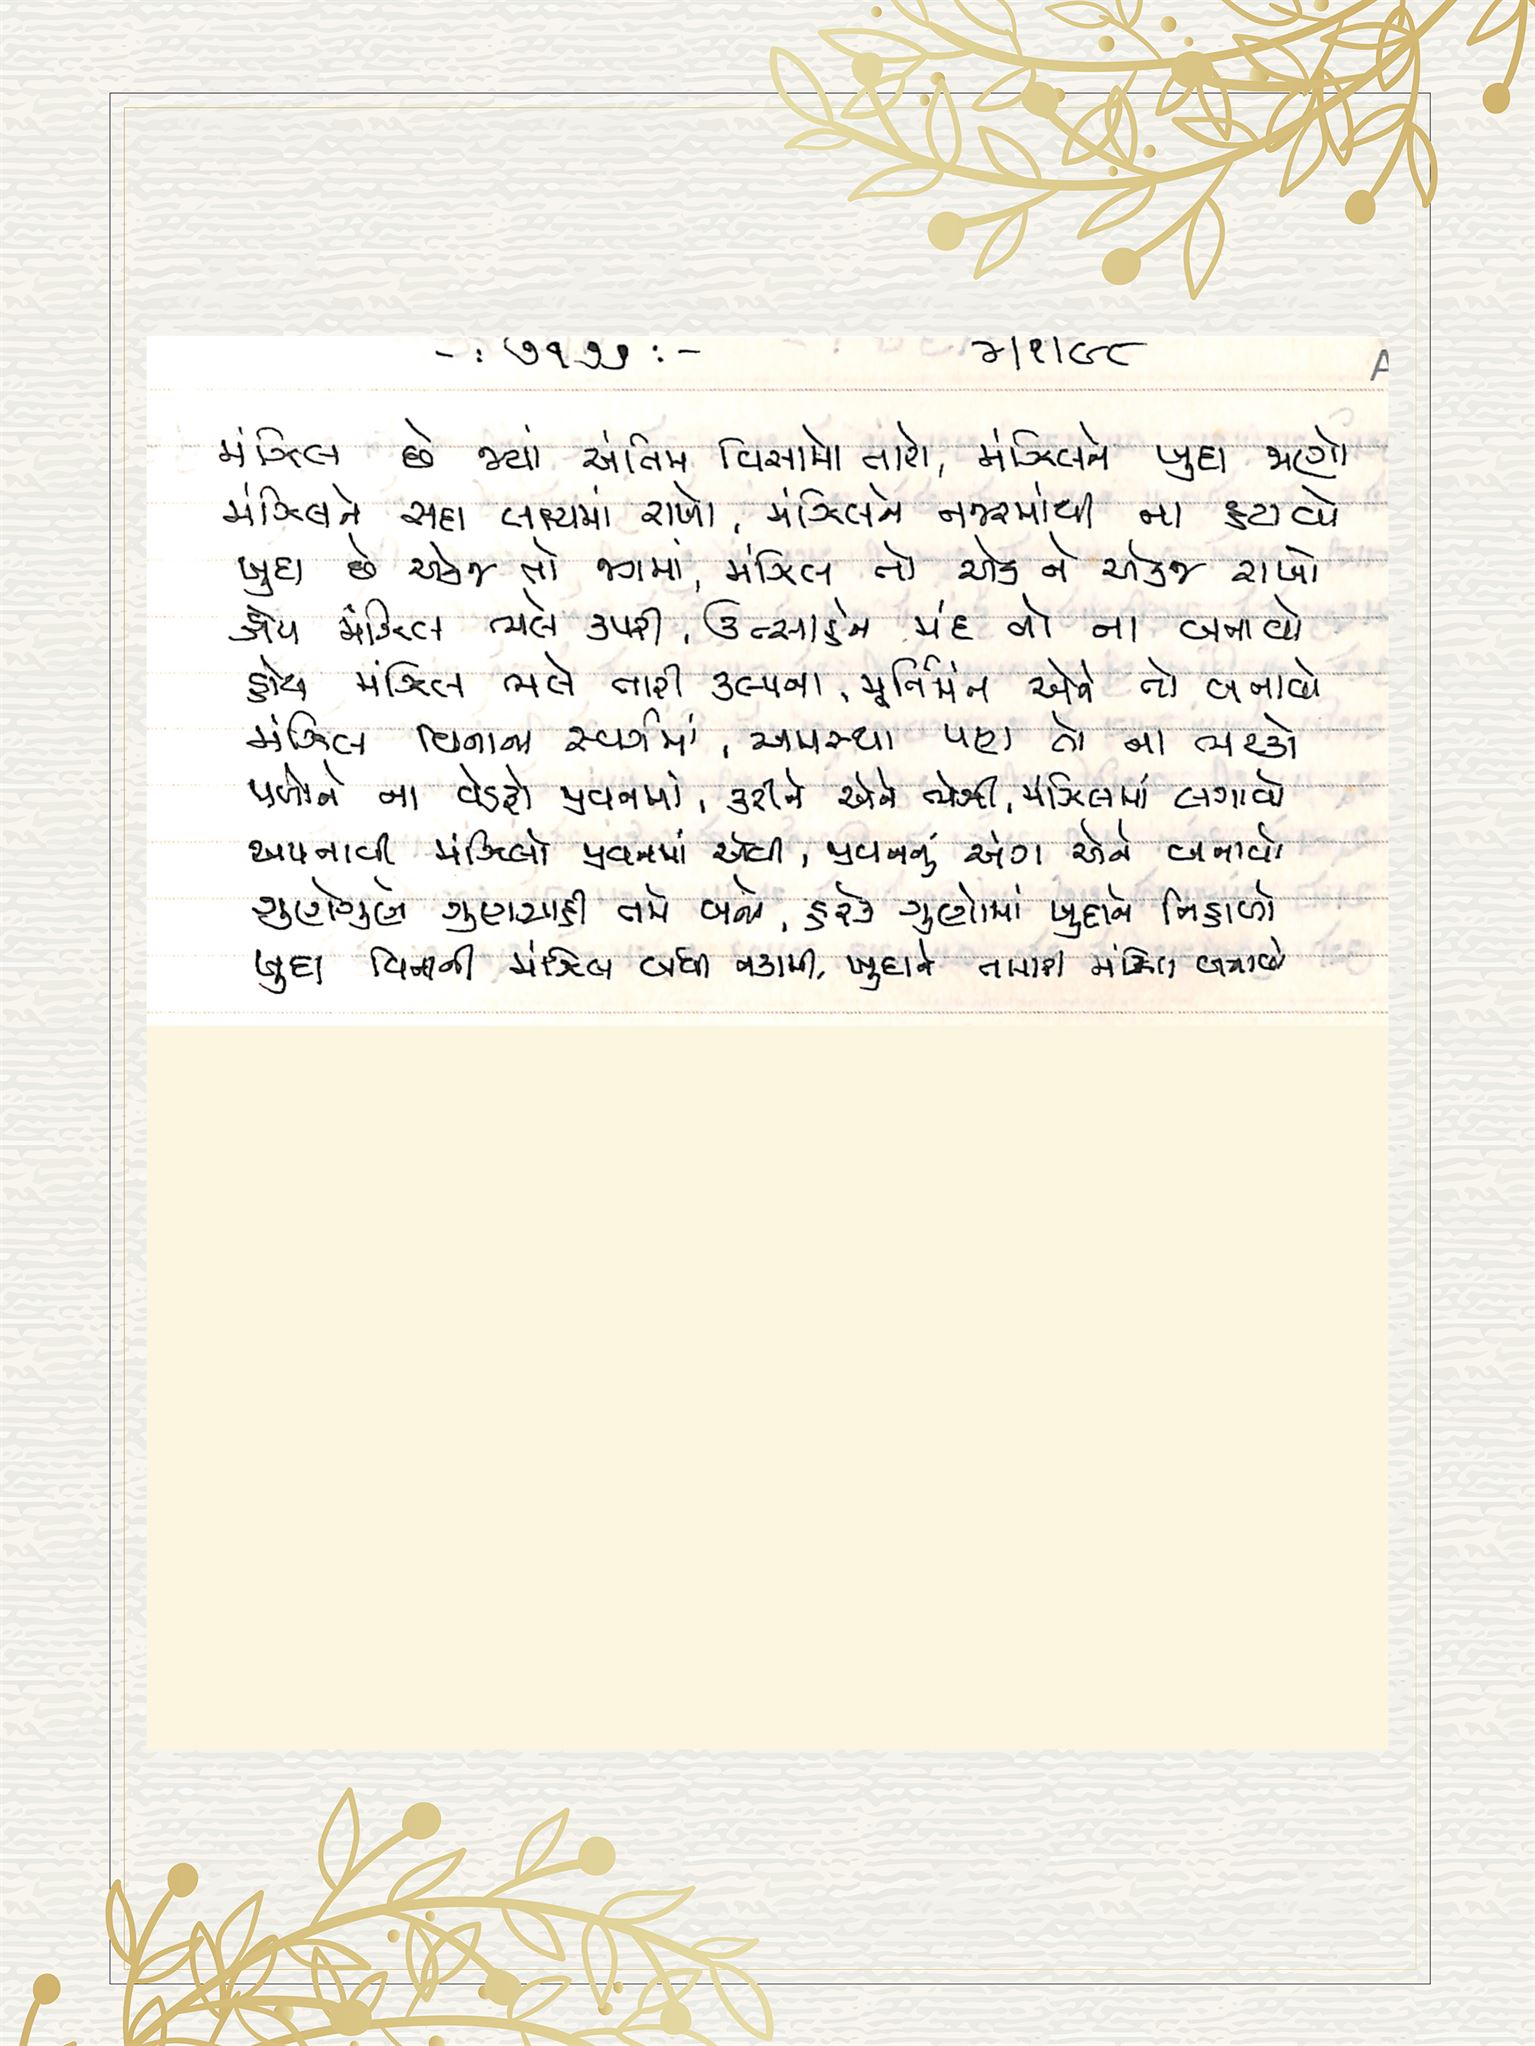 -: ૭૧૭૭ :- ૨/૧/૯૮ A
મંઝિલ છે જ્યાં અંતિમ વિસામો તારો, મંઝિલને ખુદા જાણો
મંઝિલને સદા લક્ષ્યમાં રાખો, મંઝિલને નજરમાંથી ના હટાવો
ખુદા છે એકજ તો જગમાં, મંઝિલ તો એક ને એકજ રાખો
હોય મંઝિલ ભલે કપરી, ઉત્સાહને મંદ તો ના બનાવો
હોય મંઝિલ ભલે તારી કલ્પના, મૂર્તિમંત એને તો બનાવો
મંઝિલ વિનાના સ્વર્ગમાં, અમસ્થા પણ તો ના ભટકો
પળોને ના વેડફો જીવનમાં, કરીને એને ભેગી, મંઝિલમાં લગાવો
અપનાવી મંઝિલો જીવનમાં એવી, જીવનનું અંગ એને બનાવો
ગુણેગુણે ગુણગ્રાહી તમે બનો, હરેક ગુણોમાં ખુદાને નિહાળો
ખુદા વિનાની મંઝિલ બધી નકામી, ખુદાને તમારી મંઝિલ બનાવો